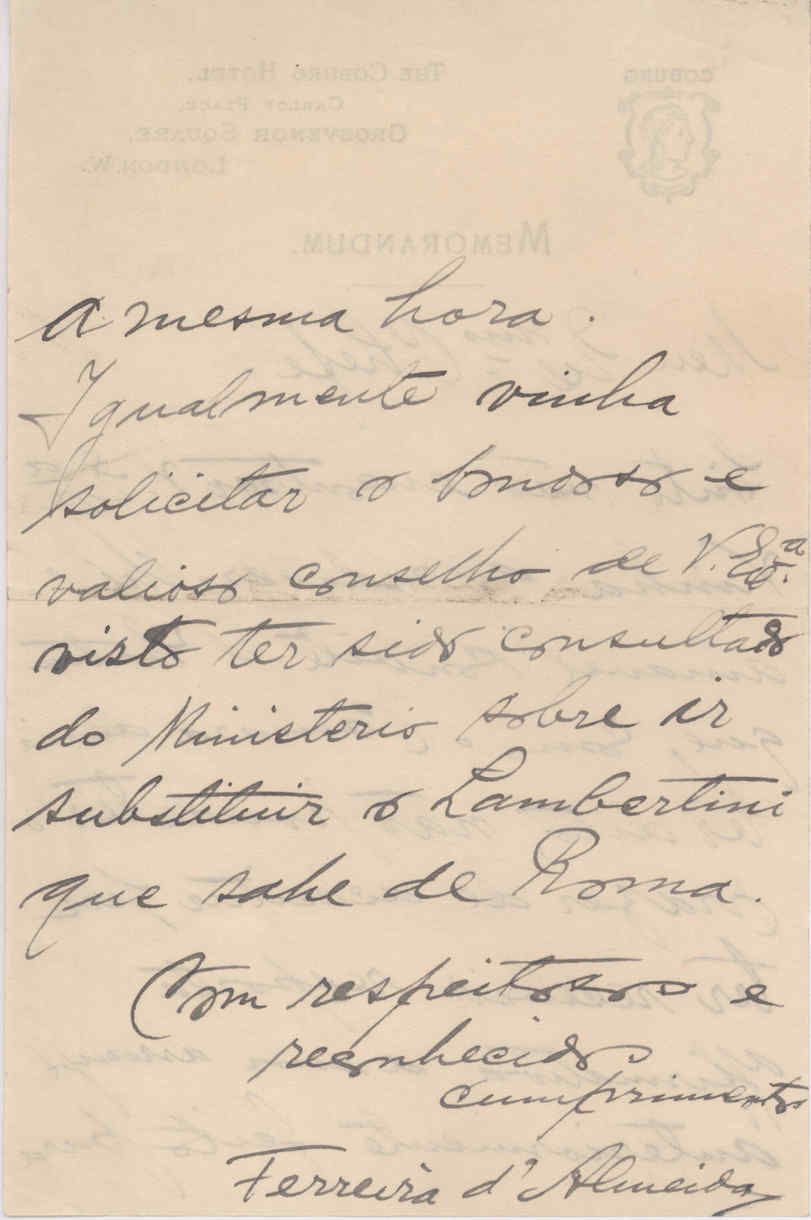 a mesma hora.
Igualmente vinha
solicitar o bondoso e
valioso conselho de V. Exª.
visto ter sido consultado
do Ministerio sobre ir
substituir o Lambertini
que sahe de Roma.
Com respeitosos e
reconhecidos
cumprimentos
Ferreira d'Almeida
THE COBURG HOTEL.
CARLOS PLACE.
GROSVENOR SQUARE.
LONDON.W.
COBURG
MEMORANDUM.